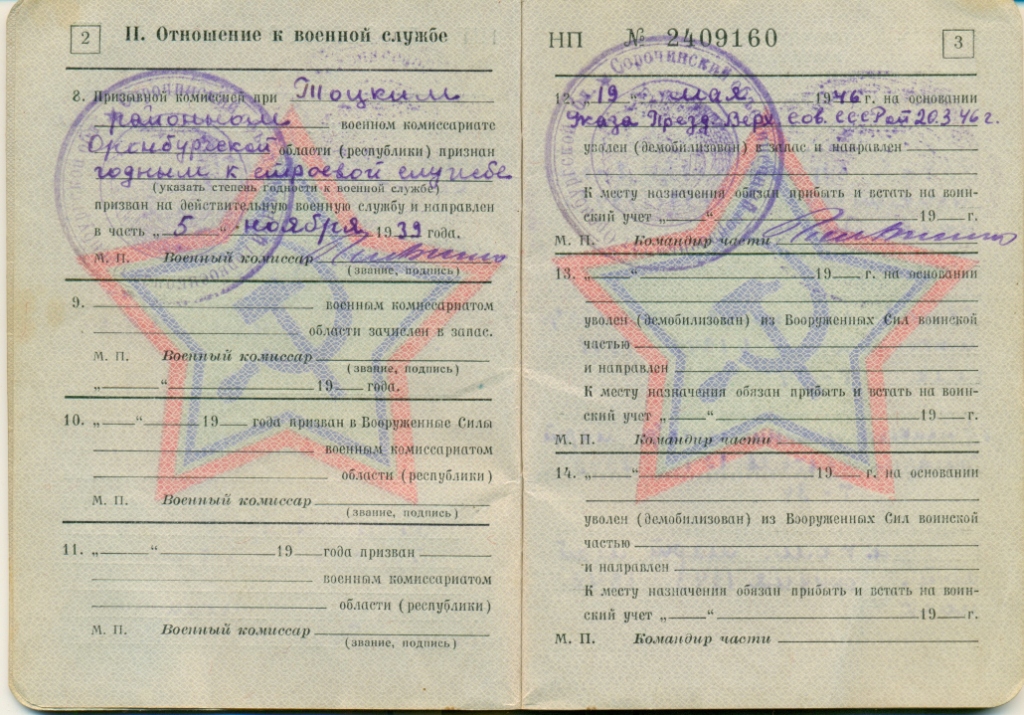 2
II. Отношение к военной службе
8. Призывной комиссией при Тоцким
районном военном комиссариате
Оренбургской области (республики) признан
годным к строевой службе
(указать степень годности к военной службе)
призван на действительную военную службу и направлен
в часть „5“ ноября 1939 года.
М. П. Военный комиссар
(звание, подпись)
9. военным комиссариатом
области зачислен в запас.
М. П. Военный комиссар
(звание, подпись)
„ “ 19 года.
10. „ “ 19 года призван в Вооруженные Силы
военным комиссариатом
области (республики)
М. П. Военный комиссар
(звание, подпись)
11. „ “ 19 года призван
военным комиссариатом
области (республики)
М. П. Военный комиссар
(звание, подпись)
НП № 2409160
3
12. „19“ мая 1946 г. на основании
Указа Презд. Верх Сов. СССР от 20.3.46 г.
уволен (демобилизован) в запас и направлен
К месту назначения обязан прибыть и встать на воин-
ский учет „ “ 19 г.
М. П. Командир части
13. „ “ 19 г. на основании
уволен (демобилизован) из Вооруженных Сил воинской
частью
и направлен
К месту назначения обязан прибыть и встать на воин-
ский учет „ “ 19 г.
М. П. Командир части
14. „ “ 19 г. на основании
уволен (демобилизован) из Вооруженных Сил воинской
частью
и направлен
К месту назначения обязан прибыть и встать на воин-
ский учет „ “ 19 г.
М. П. Командир части
Сорочинский